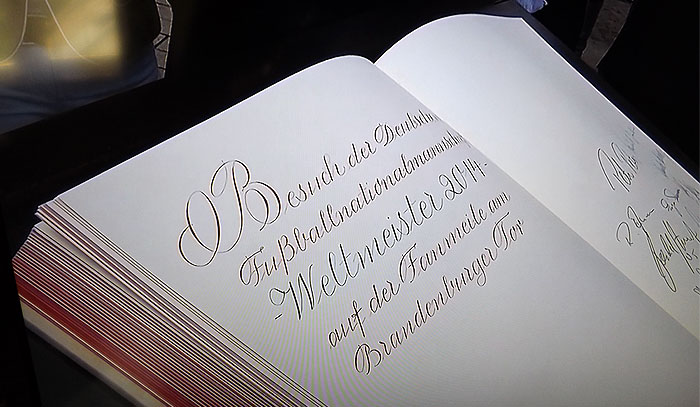 Besuch der Deutschen
Fußballnationalmannschaft
-Weltmeister 2014-
auf der Fanmeile am
Brandenburger Tor